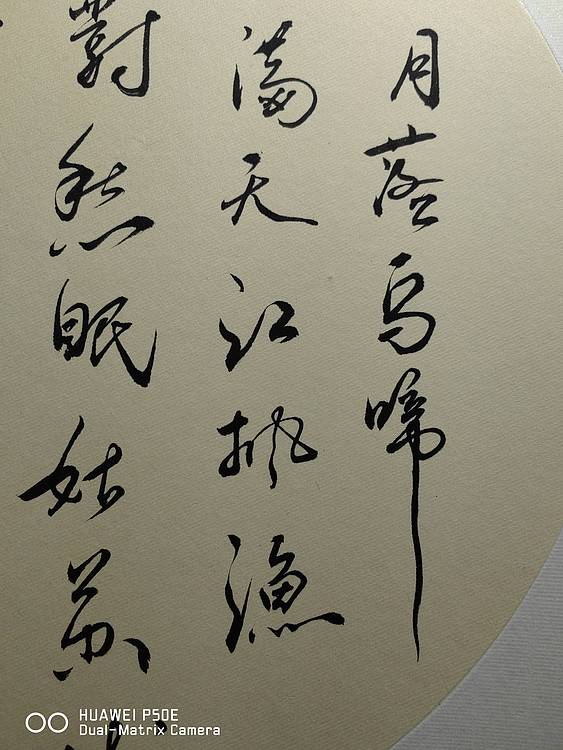 月落乌啼
满天江枫渔
對愁眠姑苏
HUAWEI P50E
Dual-Matrix Camera